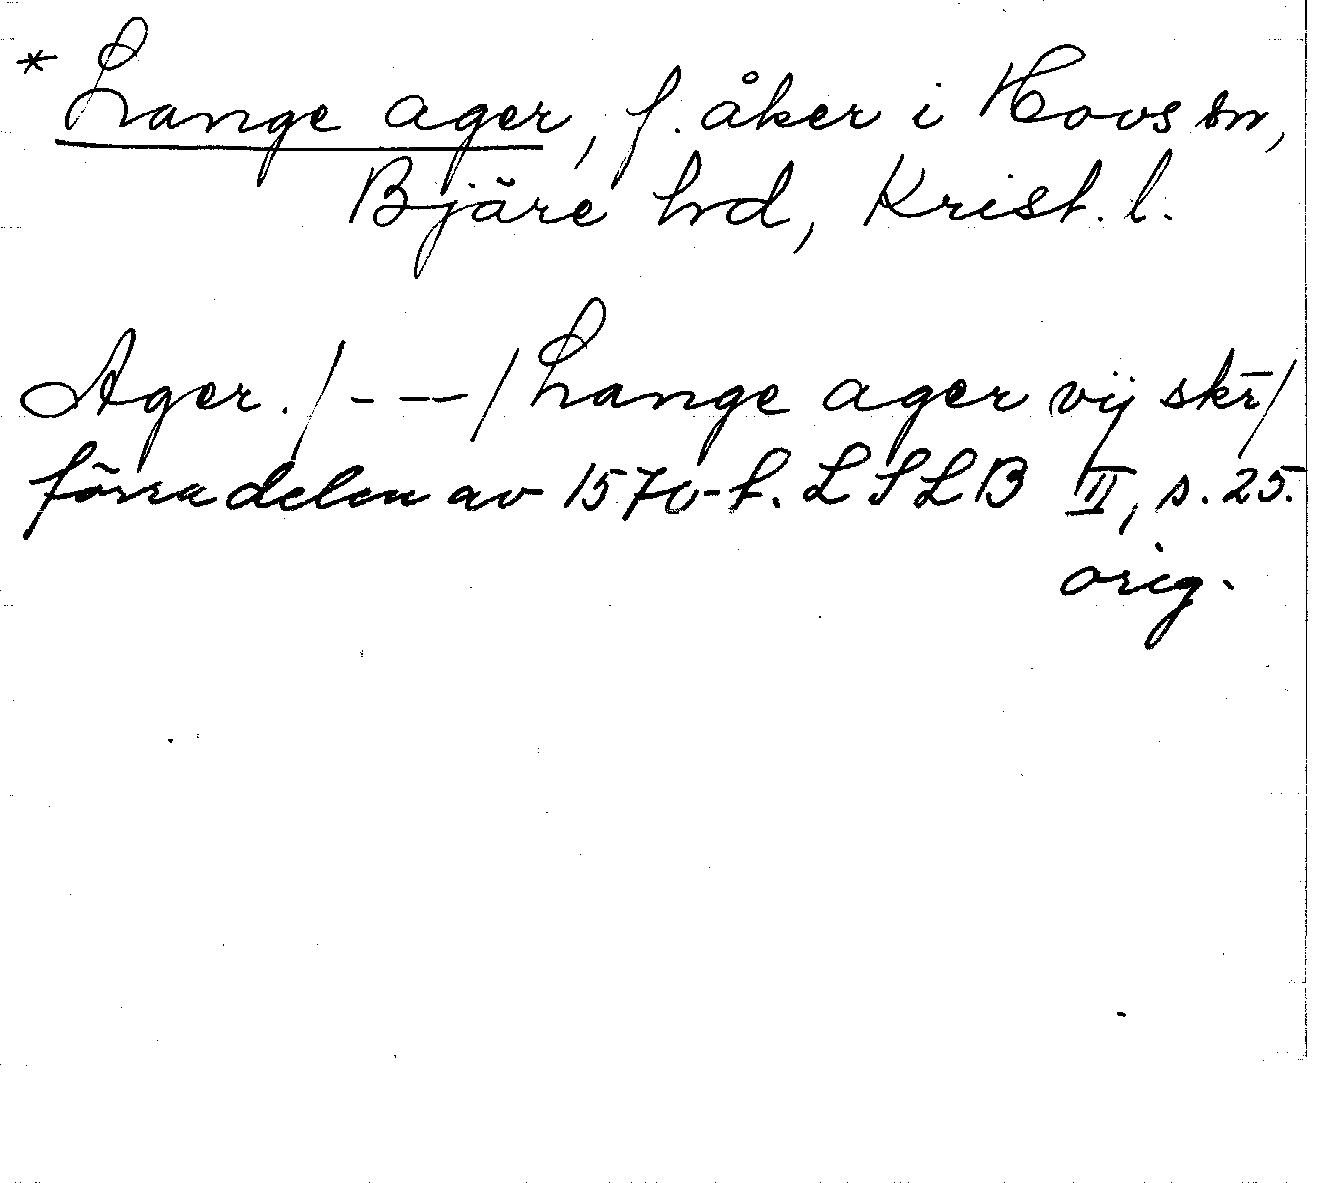 * Lange ager, f. åker i Hovs sn,
Bjäre hd, Krist. l.
Ager. / - - - / Lange ager vij skr̄ /
förra delen av 1570-t. LSLB II, s. 25.
orig.